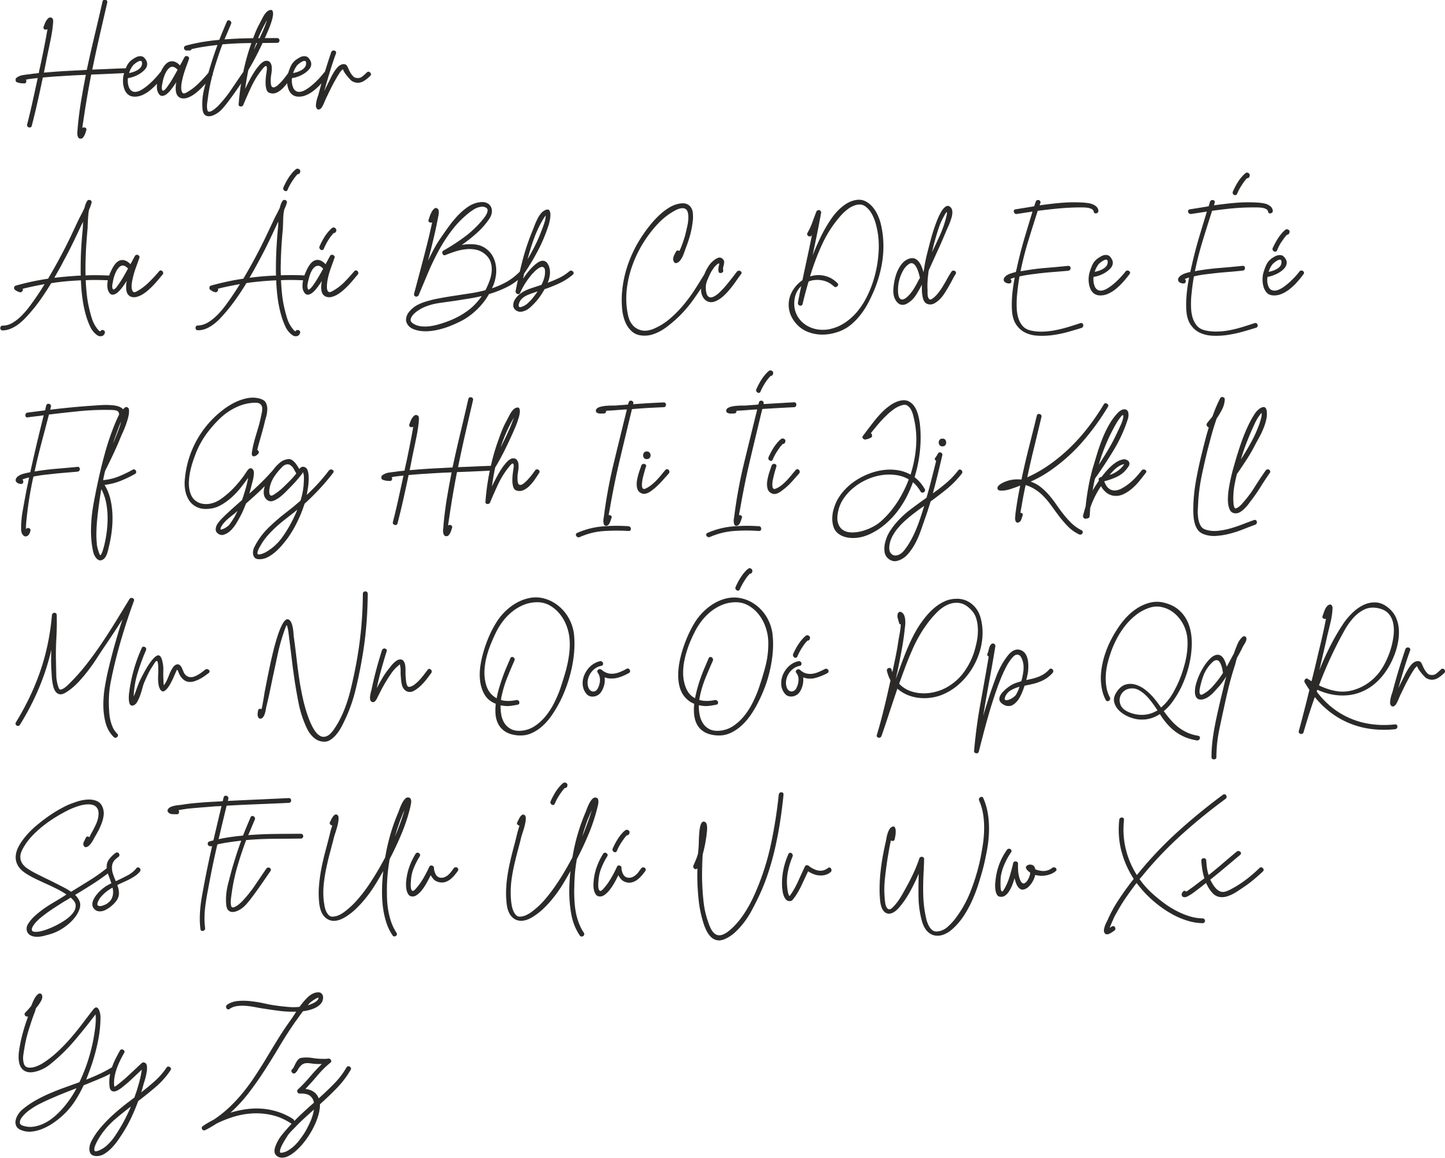 Heather
Aa Áá Bb Cc Dd Ee Éé
Ff Gg Hh Ii Íí Jj Kk Ll
Mm Nn Oo Óó Pp Qq Rr
Ss Tt Uu Úú Vv Ww Xx
Yy Zz